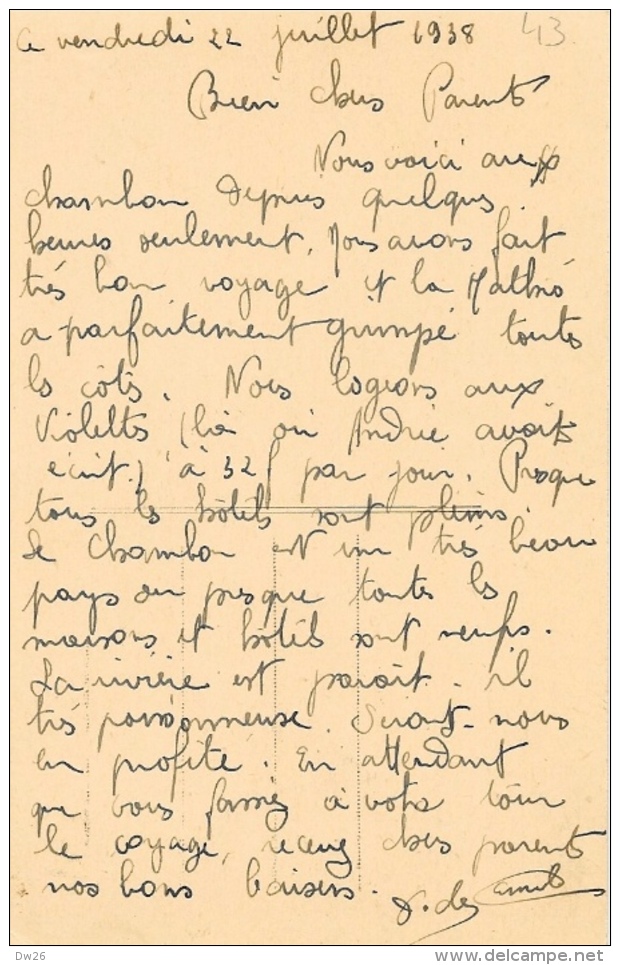 Ce vendredi 22 juillet 1938 43
Bien chers Parents
Nous voici aux
chambon depuis quelques
heures seulement. Nous avons fait
très bon voyage et la Mathis
a parfaitement grimpé toutes
les côtes. Nous logeons aux
Violettes (là où Andrée avait
écrit.) à 32f par jour. Presque
tous les hôtels sont pleins.
Le Chambon est un très beau
pays ou presque toutes les
maisons et hôtels sont neufs.
La rivière est parait-il
très poissonneuse. Seront-nous
en profité. En attendant
que vous fassiez à votre tour
le voyage, recevez chers parents
nos bons baisers.
Dw26
delcampe.net